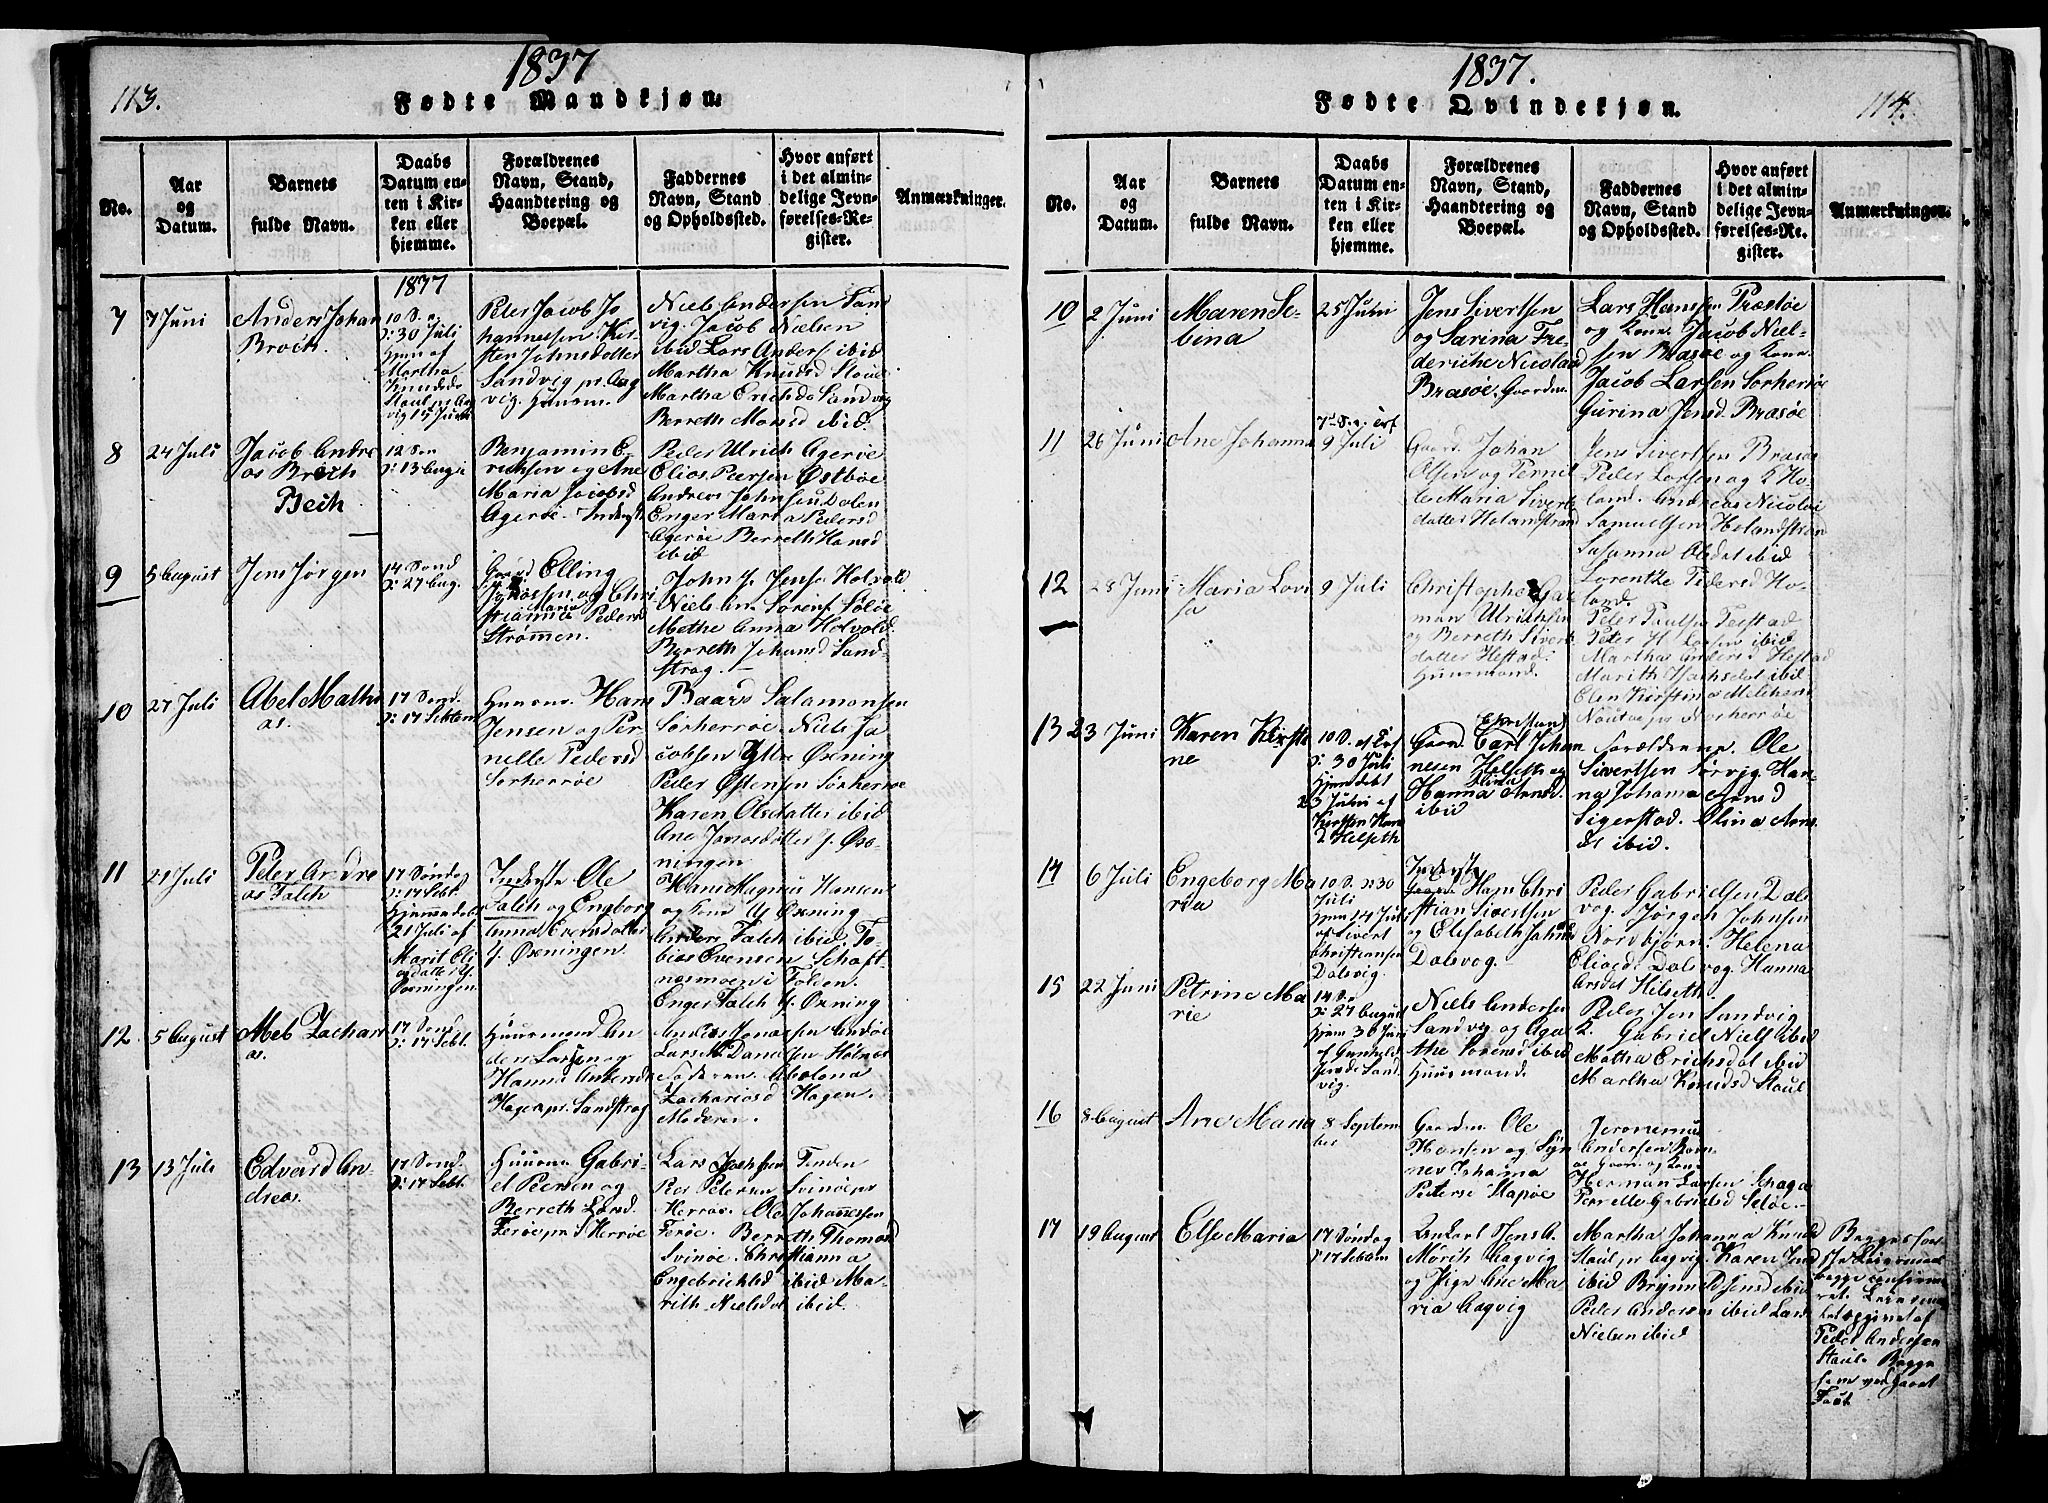 1837
113.
Fødte Mandkjøn.
No.
Aar
og
Datum.
Barnets
fulde Navn.
Daabs
Datum en-
ten i Kir-
ken eller
hjemme.
Forældrenes
Navn, Stand,
Haandtering og
Boepæl.
Faddernes
Navn, Stand
og Opholdssted.
Hvor anført
i det almin-
delige Jevn-
førelses-Re-
gister.
Anmærkninger.
1837
7
7 Juni
Anders Johan
Broch
10 S. a.
30 Juli
Hjem af
Martha
Knudsd
Staul
Peder Jacob Jo
hannessen Kir-
sten Johnsdatter
Sandvig
Niels Andersen Sand
vig. Jacob Nielsen
ibid Lars Anders ibid
Martha Knudsd Staul
Martha Erichsd Sandvig
Berreth Monsd ibid
8
24 Juli
Jacob Andre
as Broch
Bech
12 Søn
13 Aug
Benjamin E-
richsen og Ane
Maria Jacobsd
Agerøe
Peder Ulrich Agerøe
Elias Peersen Østbøe
Andreas Johnsen Dalen
Enger Maria Pedersd
Agerøe Berreth Hansd
ibid
9
5 August
Jens Jørgen
14 Sønd
27 Aug.
Elling
og Chri
stianna Maria Pedersd
Strømmen.
John J. Jens Holvold
Niels An. Sørens Søløe
Methe Anna Holvold
Berreth Johansd Sand-
strag.
10
27 Juli
Abel Mathi
as.
17 Sønd.
17 Septem
Huusm. Hans
Jensen og Per
nelle Pedersd
Sørherrøe
Baard Salamonsen
Sørherrøe. Niels Ja
cobsen Yttre Øxning
Peder Østensen Sørherrøe
Karen Olsdatter ibid
Ane Jonasdatter Y. Øx-
ningen
11
21 Juli
Peter Andre
as Falch
17 Søndag
17 Sebt.
Hjemmedøbt
21 Juli af
Marit Eli
asdatter Y.
Øxningen.
Inderste Ole
Falch og Engborg
Anna Evensdatter
Y. Øxningen.
Hans Magnus Hansen
og Kone Y Øxning
Anders Falch ibid To-
bias Evensen Schaft-
nesmoen i Folden.
Enger Falch Y. Øxning
12
5 August
Meb Zachari
as.
17 Sønd
17 Sebt.
Huusmand An
ders Larsen og
Hanna Andersd
Hagen pr. Sandstrag
Anders Jonassen Andøe
Lars M. Danielsen Holmos
Faderen. Abolona
Zachariasd Hagen.
Moderen.
13
13 Juli
Edvard An-
dreas.
17 Sønd.
17 Sebt.
Huusm. Gabri-
el Peersen og
Berreth Larsd.
Færøe pr. S Herrøe
Lars Jochsen Finden
Peer Petersen Svinøe pr
Herrøe. Ole Johannessen
Færøe. Berreth Thomasd
Svinøe. Christianna
Engebrichtsd ibid Ma-
rith Nielsdat ibid.
1837.
114.
Fødte Qvindekjøn.
No.
Aar
og
Datum.
Barnets
fulde Navn.
Daabs
Datum en-
ten i Kir-
ken eller
hjemme.
Forældrenes
Navn, Stand,
Haandtering og
Boepæl.
Faddernes
Navn, Stand
og Opholdssted.
Hvor anført
i det almin-
delige Jevn-
førelses-Re-
gister.
Anmærkninger.
10
2 Juni
Maren Se-
bina
25 Juni
Jens Sivertsen
og Sarina Fre-
deriche Nicolaid
Brasøe. Gaardm
Lars Hansen Præstøe
og Kone. Jacob Niel-
sen Brasøe og Kone
Jacob Larsen Sørherrøe
Gurina Jensd. Brasøe
11
26 Juni
Ane Johanna
9 Juli
Gaard. Johan
Olsen og Pernil
le Maria Siverts
datter Holandstrand
Jens Sivertsen Brasøe
Peder Larsen og K Ho-
land. Andreas Nicolai
Samuelsen Holandstran
Susanna Olsdat ibid
Lorentze Pedersd Ho-
land.
12
28 Juni
Maria Lovi
sa
9 Juli
Christopher Gar
man Ulrichsen
og Berreth Sivert
datter Hestad.
Huusmand.
Peder Paulsen Feestad
Peter H Larsen ibid
Martha Andersd Hestad
Marith Isachsdat ibid
Elen Kirstina Melchers
13
23 Juni
Karen Kirsti
ne
10 S. ef Tref
30 Juli
Hjemdøbt
23 Juni af
Kirsten Hans
d Helseth
Christian
Gaard. Carl Johan
nesen Helseth og
Hanna Olina Arnsd.
ibid
Forældrene. Ole
Sivertsen Sørvig. Han-
na Johanna Arnsd
Sigerstad. Olina Arns
d ibid.
14
6 Juli
Engeborg Ma
ria
10 S. 30
Juli
Hjem 14 Juli
af Sivert
Christiansen
Dalsvog.
Inderste
Hans Chri
stian Sivertsen
og Elisabeth Johns
Dalsvog.
Peder Gabrielsen Dals
vog. Jørgen Johnsen
Nordbjørn. Helena
Eliaedr Dalsvog. Hanna
Arsdat Hilseth.
15
22 Juni
Petrine Ma
rie
27 August
Hjem 30 Juni
af Gunhild
Sand
vig.
Niels Andersen
Sandvig og Aga-
the Sørensd ibid
Huusmand.
Peder Jen Sandvig
2. Gabriel Niels ibid
Martha Erichsdat ibid
Martha Knudsd Staul
16
8 August
Ane Maria
8 Septem-
ber
Gaardm. Ole
Hansen og Syn
nev Johanna
Peders Hapøe
Jeronemus
Andersen
og Kone
Herman Larsen Schaga
Pernelle Gabrielsd Seløe.
17
19 August
Else Maria
17 Søndag
17 Sebtem
Ungkarl Jens A.
Mörch Aagvig
og Pige Ane Ma-
ria Aagvig
Martha Johanna Knudsd
Staul pr Aagvig. Karen Jensd
ibid Brynnild Jensd ibid
Peder Anders ibid Lars
Nielsen ibid
Begges før-
ste Leiermaal
begge confirme-
ret. Leiermaa
let angivet af
Peder Andersen
Staul. Begge